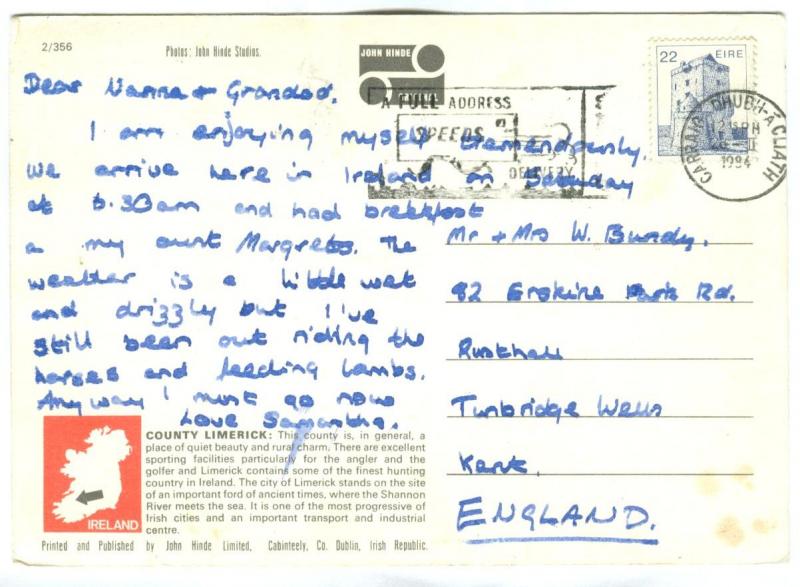 2/356
Photos: John Hinde Studios.
JOHN HINDE
22 EIRE
A FULL ADDRESS
SPEEDS
DELIVERY
DHUBH-Á CLIATH
1984
Dear Nanna + Grandad.
I am enjoying myself tremendously.
we arrive here in Ireland on Saturday
at 6.30am and had breekfast
a my aunt Margrets. The
weather is a little wet
and drizzly but I've
still been out riding the
horses and feeding lambs.
Anyway I must go now
Love Samantha.
Mr + Mrs W. Bundy.
82 Erskine Park Rd.
Rusthall
Tunbridge Wells
Kent.
ENGLAND.
IRELAND
COUNTY LIMERICK: This county is, in general, a
place of quiet beauty and rural charm. There are excellent
sporting facilities particularly for the angler and the
golfer and Limerick contains some of the finest hunting
country in Ireland. The city of Limerick stands on the site
of an important ford of ancient times, where the Shannon
River meets the sea. It is one of the most progressive of
Irish cities and an important transport and industrial
centre.
Printed and Published by John Hinde Limited, Cabinteely, Co. Dublin, Irish Republic.